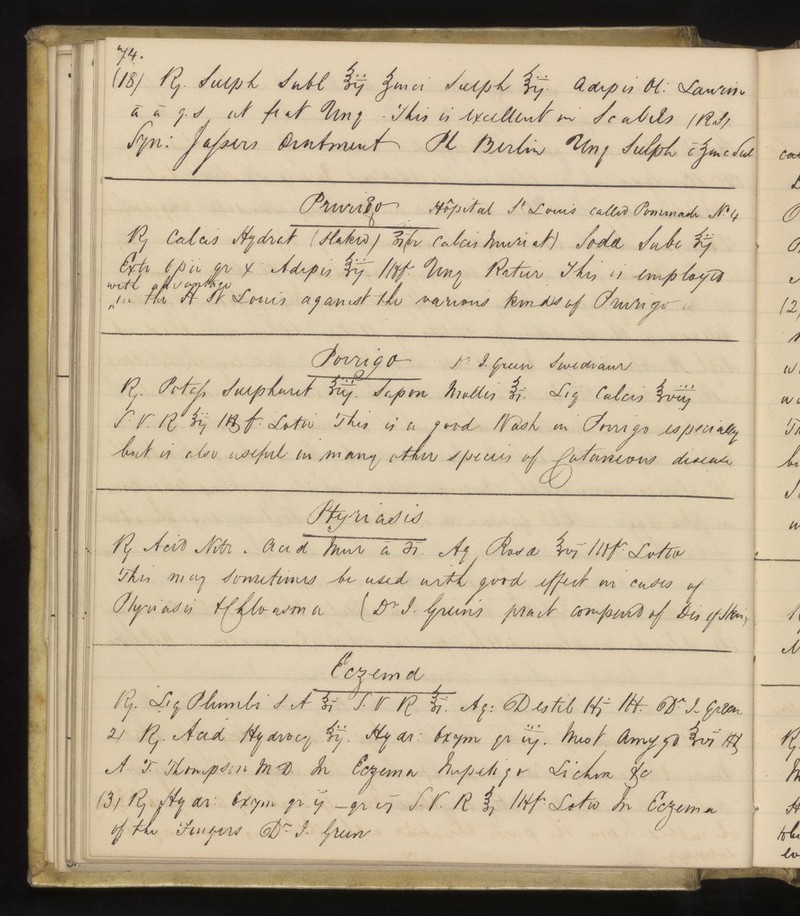 74.
(18) ℞. Sulph Subl ʒij Zinci Sulph ʒij. Adipis Ol: Laurin
ā ā q.s. ut fiat Ung - This is excellent in Scabies
Syn: Jaspers Ointment Ph Berlin Ung Sulph c̄ Zinc Sul
Prurigo Hôpital St Louis called Pommade No 4
℞ Calcis Hydrat (Slaked) Calcis Muriat) Soda Subc ʒij
Extr Opii gr x Adipis ℥ij Mft. Ung This is employed
with advantage
in the H St Louis against the various kinds of Prurigo
Porrigo J. Green Swediaur
℞. Potass Sulphuret ʒiij. Sapon Mollis ℥i. Liq Calcis ℥viij
S. V. R ʒij M ft. Lotio This is a good Wash in Porrigo especially
but is also useful in many other species of Cutaneous disease
Ptyriasis
℞ Acid Nitr. Acid Mur ā ʒi. Aq Rosa ℥vi Mft Lotio
This may sometimes be used with good effect in cases of
Ptyriasis & Chloasma (Dr J. Green's pract compend of Dis of Skin,
Eczema
℞. Liq Plumbi S. A ʒi S. V R ℥i. Aq: Destil Mt. Dr J. Green
2) ℞. Acid Hydrocy ʒij. Hydr: Oxym gr ij. Mist Amygd ℥vi M
A T. Thompson M D. In Eczema Impetigo Lichen &c
(3) ℞ Hydr: Oxym gr ij - gr vj S. V. R ℥j Mft Lotio In Eczema
of the Fingers Dr J. Green